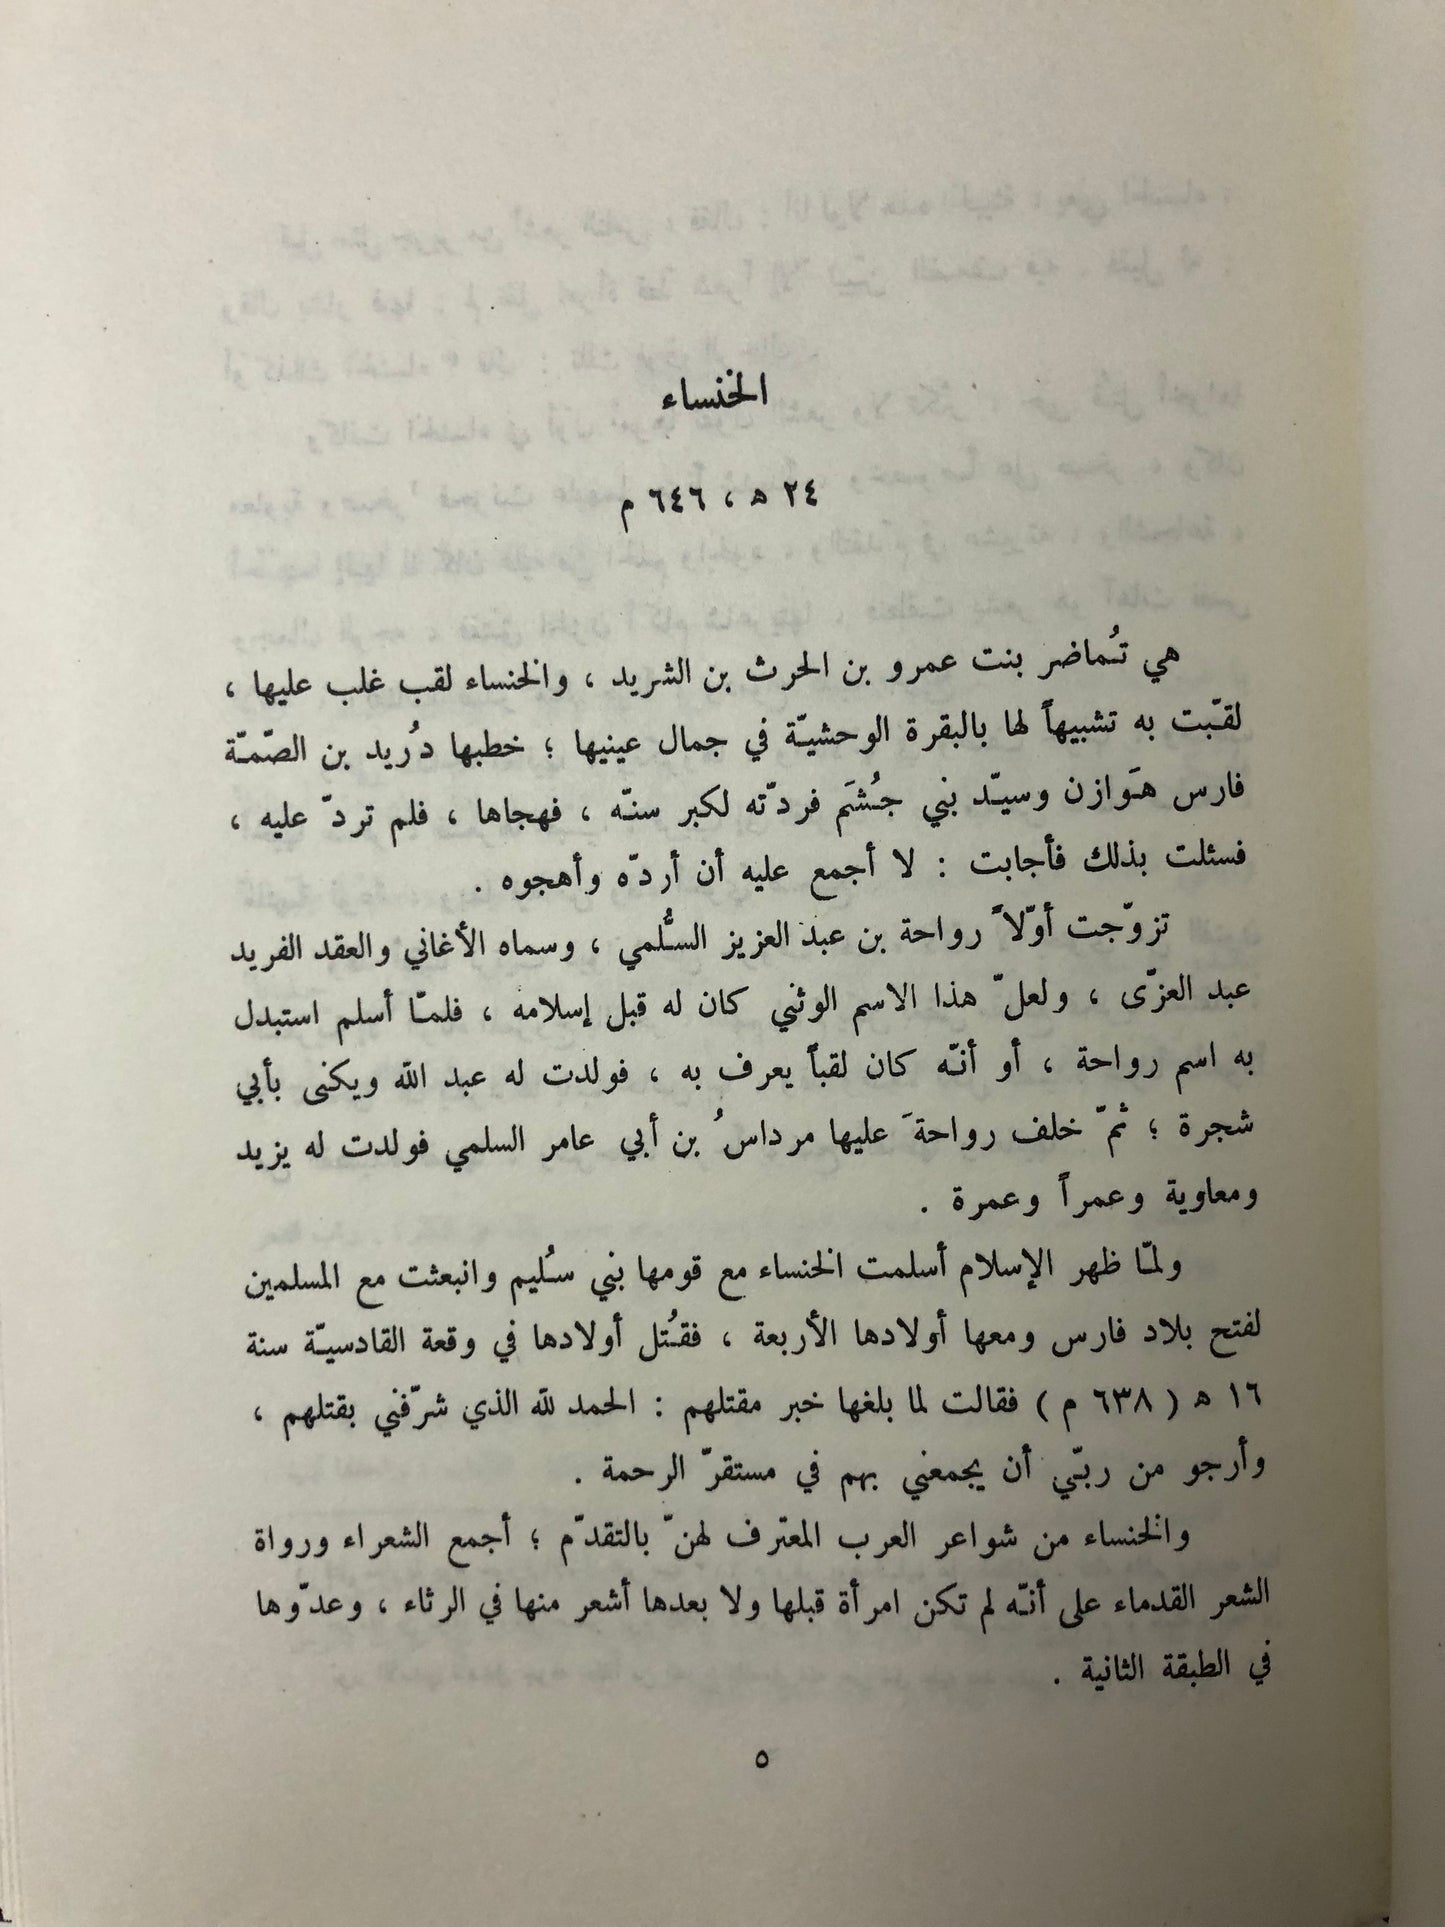 الخنساء
٢٤ ه ، ٦٤٦ م
هي تُماضر بنت عمرو بن الحرث بن الشريد ، والخنساء لقب غلب عليها ،
لقّبت به تشبيهاً لها بالبقرة الوحشيّة في جمال عينيها ؛ خطبها دُريد بن الصّمّة
فارس هَوازن وسيّد بني جُشَم فردّته لكبر سنّه ، فهجاها ، فلم تردّ عليه ،
فسئلت بذلك فأجابت : لا أجمع عليه أن أردّه وأهجوه .
تزوّجت أوّلاً رواحة بن عبد العزيز السُّلمي ، وسماه الأغاني والعقد الفريد
عبد العزّى ، ولعلّ هذا الاسم الوثني كان له قبل إسلامه ، فلمّا أسلم استبدل
به اسم رواحة ، أو أنّه كان لقباً يعرف به ، فولدت له عبد الله ويكنى بأبي
شجرة ؛ ثمّ خلف رواحةَ عليها مرداسُ بن أبي عامر السلمي فولدت له يزيد
ومعاوية وعمراً وعمرة .
ولمّا ظهر الإسلام أسلمت الخنساء مع قومها بني سُليم وانبعثت مع المسلمين
لفتح بلاد فارس ومعها أولادها الأربعة ، فقُتل أولادها في وقعة القادسيّة سنة
١٦ ه ( ٦٣٨ م ) فقالت لما بلغها خبر مقتلهم : الحمد لله الذي شرّفني بقتلهم ،
وأرجو من ربّي أن يجمعني بهم في مستقرّ الرحمة .
والخنساء من شواعر العرب المعترف لهنّ بالتقدّم ؛ أجمع الشعراء ورواة
الشعر القدماء على أنّه لم تكن امرأة قبلها ولا بعدها أشعر منها في الرثاء ، وعدّوها
في الطبقة الثانية .
٥